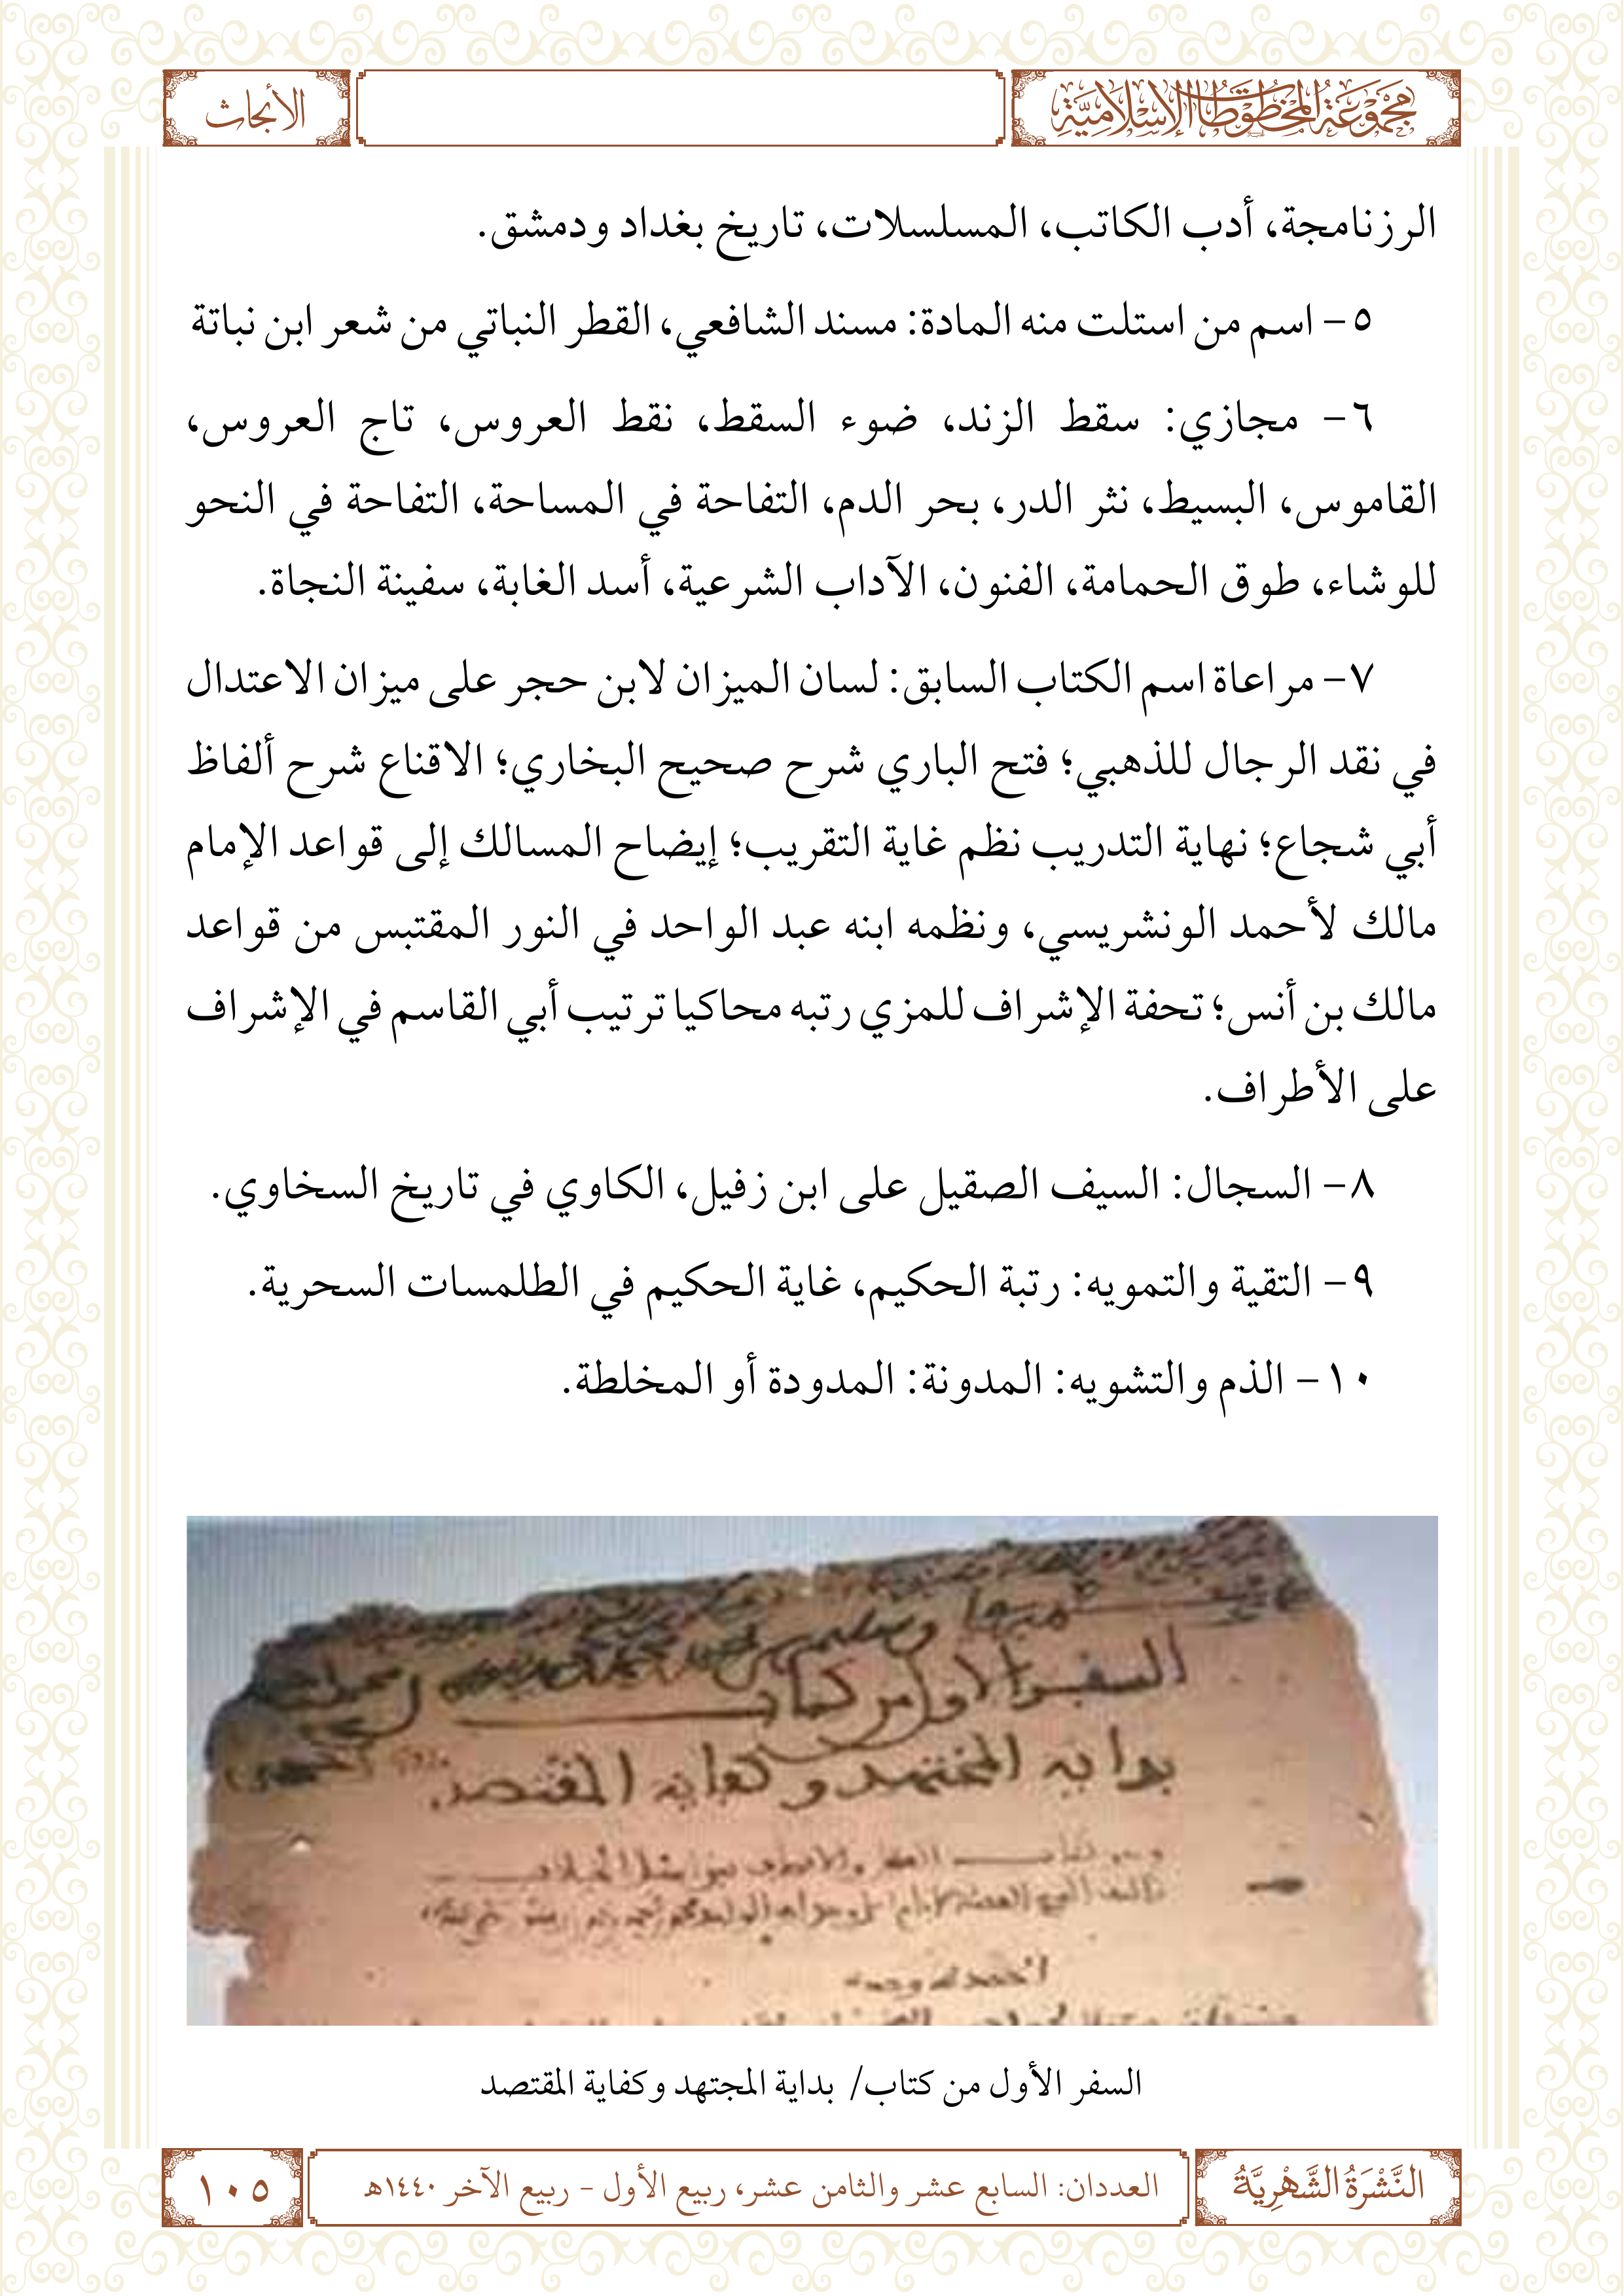 مَجْمُوعَةُ المَخْطُوطَاتِ الإِسْلَامِيَّةِ
الأبحاث
الرزنامجة، أدب الكاتب، المسلسلات، تاريخ بغداد ودمشق.
٥- اسم من استلت منه المادة: مسند الشافعي، القطر النباتي من شعر ابن نباتة
٦- مجازي: سقط الزند، ضوء السقط، نقط العروس، تاج العروس،
القاموس، البسيط، نثر الدر، بحر الدم، التفاحة في المساحة، التفاحة في النحو
للوشاء، طوق الحمامة، الفنون، الآداب الشرعية، أسد الغابة، سفينة النجاة.
٧- مراعاة اسم الكتاب السابق: لسان الميزان لابن حجر على ميزان الاعتدال
في نقد الرجال للذهبي؛ فتح الباري شرح صحيح البخاري؛ الاقناع شرح ألفاظ
أبي شجاع؛ نهاية التدريب نظم غاية التقريب؛ إيضاح المسالك إلى قواعد الإمام
مالك لأحمد الونشريسي، ونظمه ابنه عبد الواحد في النور المقتبس من قواعد
مالك بن أنس؛ تحفة الإشراف للمزي رتبه محاكيا ترتيب أبي القاسم في الإشراف
على الأطراف.
٨- السجال: السيف الصقيل على ابن زفيل، الكاوي في تاريخ السخاوي.
٩- التقية والتمويه: رتبة الحكيم، غاية الحكيم في الطلمسات السحرية.
١٠- الذم والتشويه: المدونة: المدودة أو المخلطة.
السفر الأول من كتاب
بداية المجتهد وكفاية المقتصد
السفر الأول من كتاب/ بداية المجتهد وكفاية المقتصد
النَّشْرَةُ الشَّهْرِيَّةُ
العددان: السابع عشر والثامن عشر، ربيع الأول - ربيع الآخر ١٤٤٠هـ
١٠٥